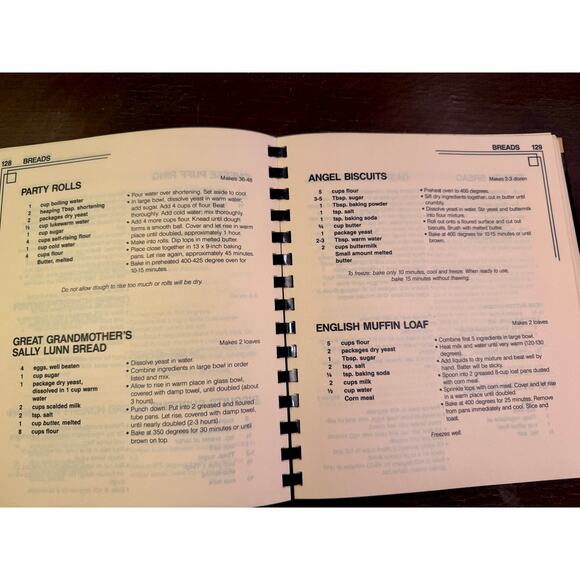 128 BREADS
PARTY ROLLS
Makes 36-48
1 cup boiling water
2 heaping Tbsp. shortening
2 packages dry yeast
½ cup lukewarm water
1 cup sugar
4 cups self-rising flour
1 cup cold water
4 cups flour
Butter, melted
• Pour water over shortening. Set aside to cool.
• In large bowl, dissolve yeast in warm water;
add sugar. Add 4 cups of flour. Beat
thoroughly. Add cold water; mix thoroughly.
• Add 4 more cups flour. Knead until dough
forms a smooth ball. Cover and let rise in warm
place until doubled, approximately 1 hour.
• Make into rolls. Dip tops in melted butter.
• Place close together in 13 x 9-inch baking
pans. Let rise again, approximately 45 minutes.
• Bake in preheated 400-425 degree oven for
10-15 minutes.
Do not allow dough to rise too much or rolls will be dry.
GREAT GRANDMOTHER'S
SALLY LUNN BREAD
Makes 2 loaves
4 eggs, well beaten
1 cup sugar
1 package dry yeast,
dissolved in 1 cup warm
water
2 cups scalded milk
2 tsp. salt
1 cup butter, melted
8 cups flour
• Dissolve yeast in water.
• Combine ingredients in large bowl in order
listed and mix.
• Allow to rise in warm place in glass bowl,
covered with damp towel, until doubled (about
3 hours).
• Punch down. Put into 2 greased and floured
tube pans. Let rise, covered with damp towel,
until nearly doubled (2-3 hours).
• Bake at 350 degrees for 30 minutes or until
brown on top.
BREADS 129
ANGEL BISCUITS
Makes 2-3 dozen
5 cups flour
3-5 Tbsp. sugar
1 Tbsp. baking powder
1 tsp. salt
1 tsp. baking soda
¾ cup butter
1 package yeast
2-3 Tbsp. warm water
2 cups buttermilk
Small amount melted
butter
• Preheat oven to 400 degrees.
• Sift dry ingredients together; cut in butter until
crumbly.
• Dissolve yeast in water. Stir yeast and buttermilk
into flour mixture.
• Roll out onto a floured surface and cut out
biscuits. Brush with melted butter.
• Bake at 400 degrees for 10-15 minutes or until
brown.
To freeze: bake only 10 minutes, cool and freeze. When ready to use,
bake 15 minutes without thawing.
ENGLISH MUFFIN LOAF
Makes 2 loaves
5 cups flour
2 packages dry yeast
1 Tbsp. sugar
2 tsp. salt
¼ tsp. baking soda
2 cups milk
½ cup water
Corn meal
• Combine first 5 ingredients in large bowl.
• Heat milk and water until very warm (120-130
degrees).
• Add liquids to dry mixture and beat well by
hand. Batter will be sticky.
• Spoon into 2 greased 8-cup loaf pans dusted
with corn meal.
• Sprinkle tops with corn meal. Cover and let rise
in a warm place until doubled.
• Bake at 400 degrees for 25 minutes. Remove
from pans immediately and cool. Slice and
toast.
Freezes well.